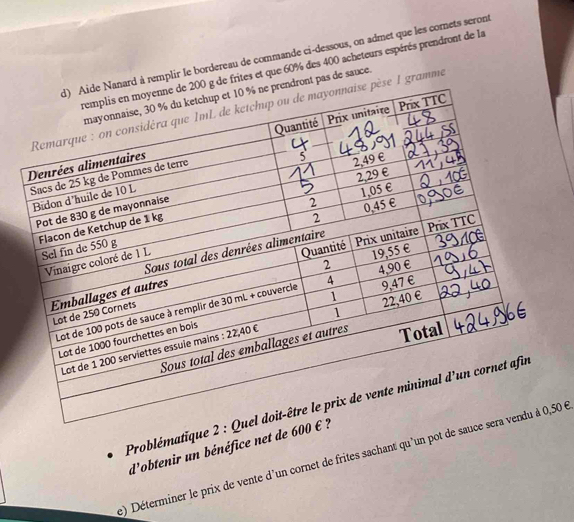 d) Aide Nanard à remplir le bordereau de commande ci-dessous, on admet que les cornets seront
remplis en moyenne de 200 g de frites et que 60% des 400 acheteurs espérés prendront de la
mayonnaise, 30 % du ketchup et 10 % ne prendront pas de sauce.
Remarque : on considéra que 1mL de ketchup ou de mayonnaise pèse 1 gramme
Denrées alimentaires Quantité Prix unitaire Prix TTC
Sacs de 25 kg de Pommes de terre 4 12 48
Bidon d'huile de 10 L 5 48,91 244,55
Pot de 830 g de mayonnaise 11 2,49 € 27,39
Flacon de Ketchup de 1 kg 5 2,29 € 11,45
Sel fin de 550 g 2 1,05 € 2,10€
Vinaigre coloré de 1 L 2 0,45 € 0,90€
Sous total des denrées alimentaire
Emballages et autres Quantité Prix unitaire Prix TTC
Lot de 250 Cornets 2 19,55 € 39,10€
Lot de 100 pots de sauce à remplir de 30 mL + couvercle 4 4,90 € 19,6
Lot de 1000 fourchettes en bois 1 9,47 € 9,47
Lot de 1 200 serviettes essuie mains : 22,40 € 1 22,40 € 22,40
Sous total des emballages et autres
Total 424,96€
• Problématique 2 : Quel doit-être le prix de vente minimal d'un cornet afin
d'obtenir un bénéfice net de 600 € ?
e) Déterminer le prix de vente d'un cornet de frites sachant qu'un pot de sauce sera vendu à 0,50 €.